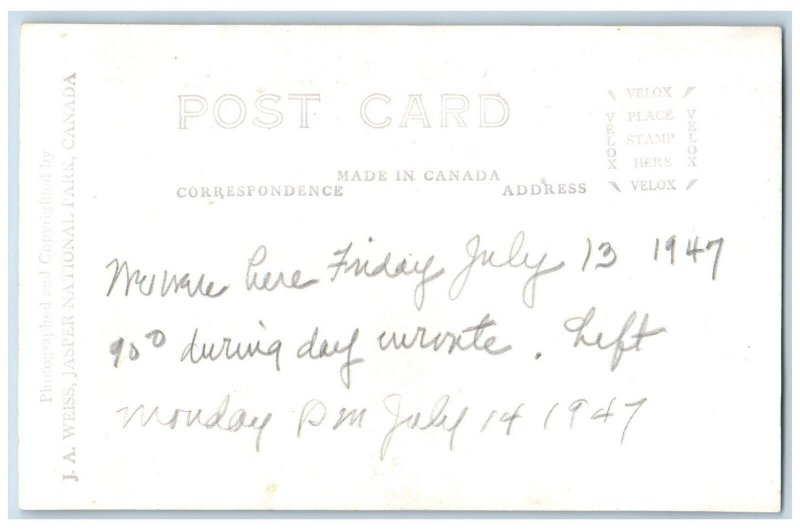 Photographed and Copyrighted by
J. A. WEISS, JASPER NATIONAL PARK, CANADA
POST CARD
MADE IN CANADA
CORRESPONDENCE
ADDRESS
VELOX
VELOX
PLACE
STAMP
HERE
VELOX
VELOX
here Friday July 13 1947
90° during day enroute. Left
Monday PM July 14 1947